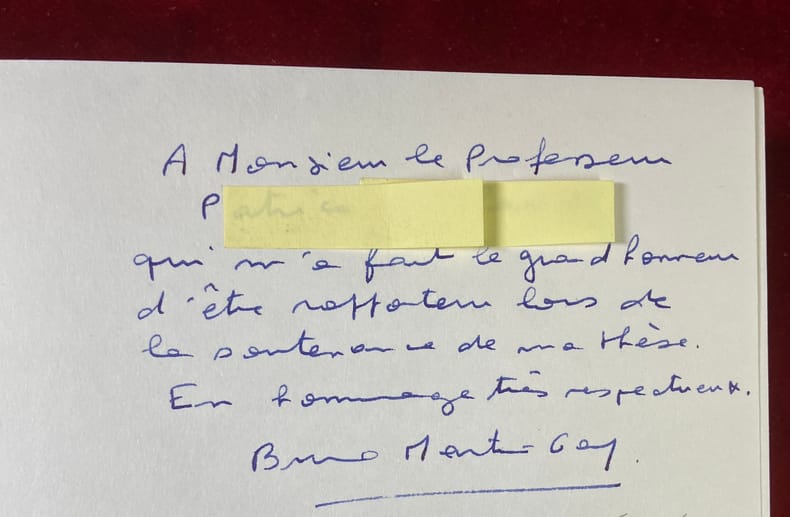 A Monsieur le Professeur
P
qui m'a fait le grand honneur
d'être rapporteur lors de
la soutenance de ma thèse.
En hommage très respectueux.
Bruno Martin-Gay.